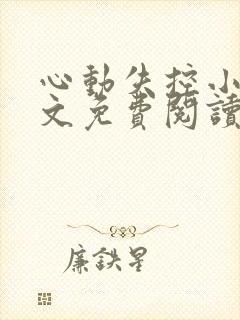 心動失控小
文免費閱讀
廉鉄星